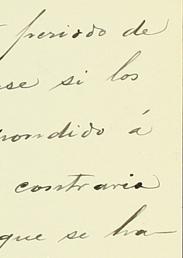 periodo de
se si los
pondido á
contraria
que se ha-